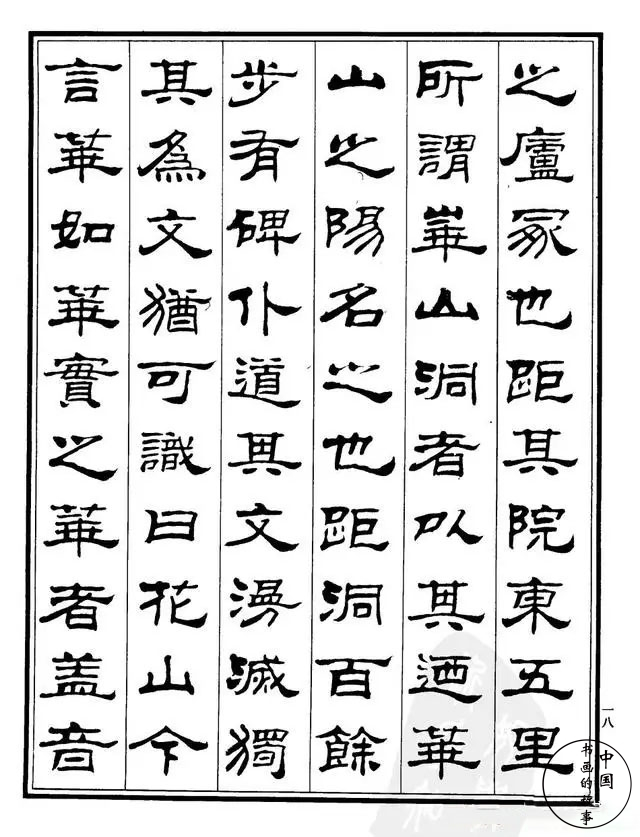 之廬冢也距其院東五里
所謂華山洞者以其迺華
山之陽名之也距洞百餘
步有碑仆道其文漫滅獨
其為文猶可識曰花山今
言華如華實之華者盖音
一八
中国
书画的故事